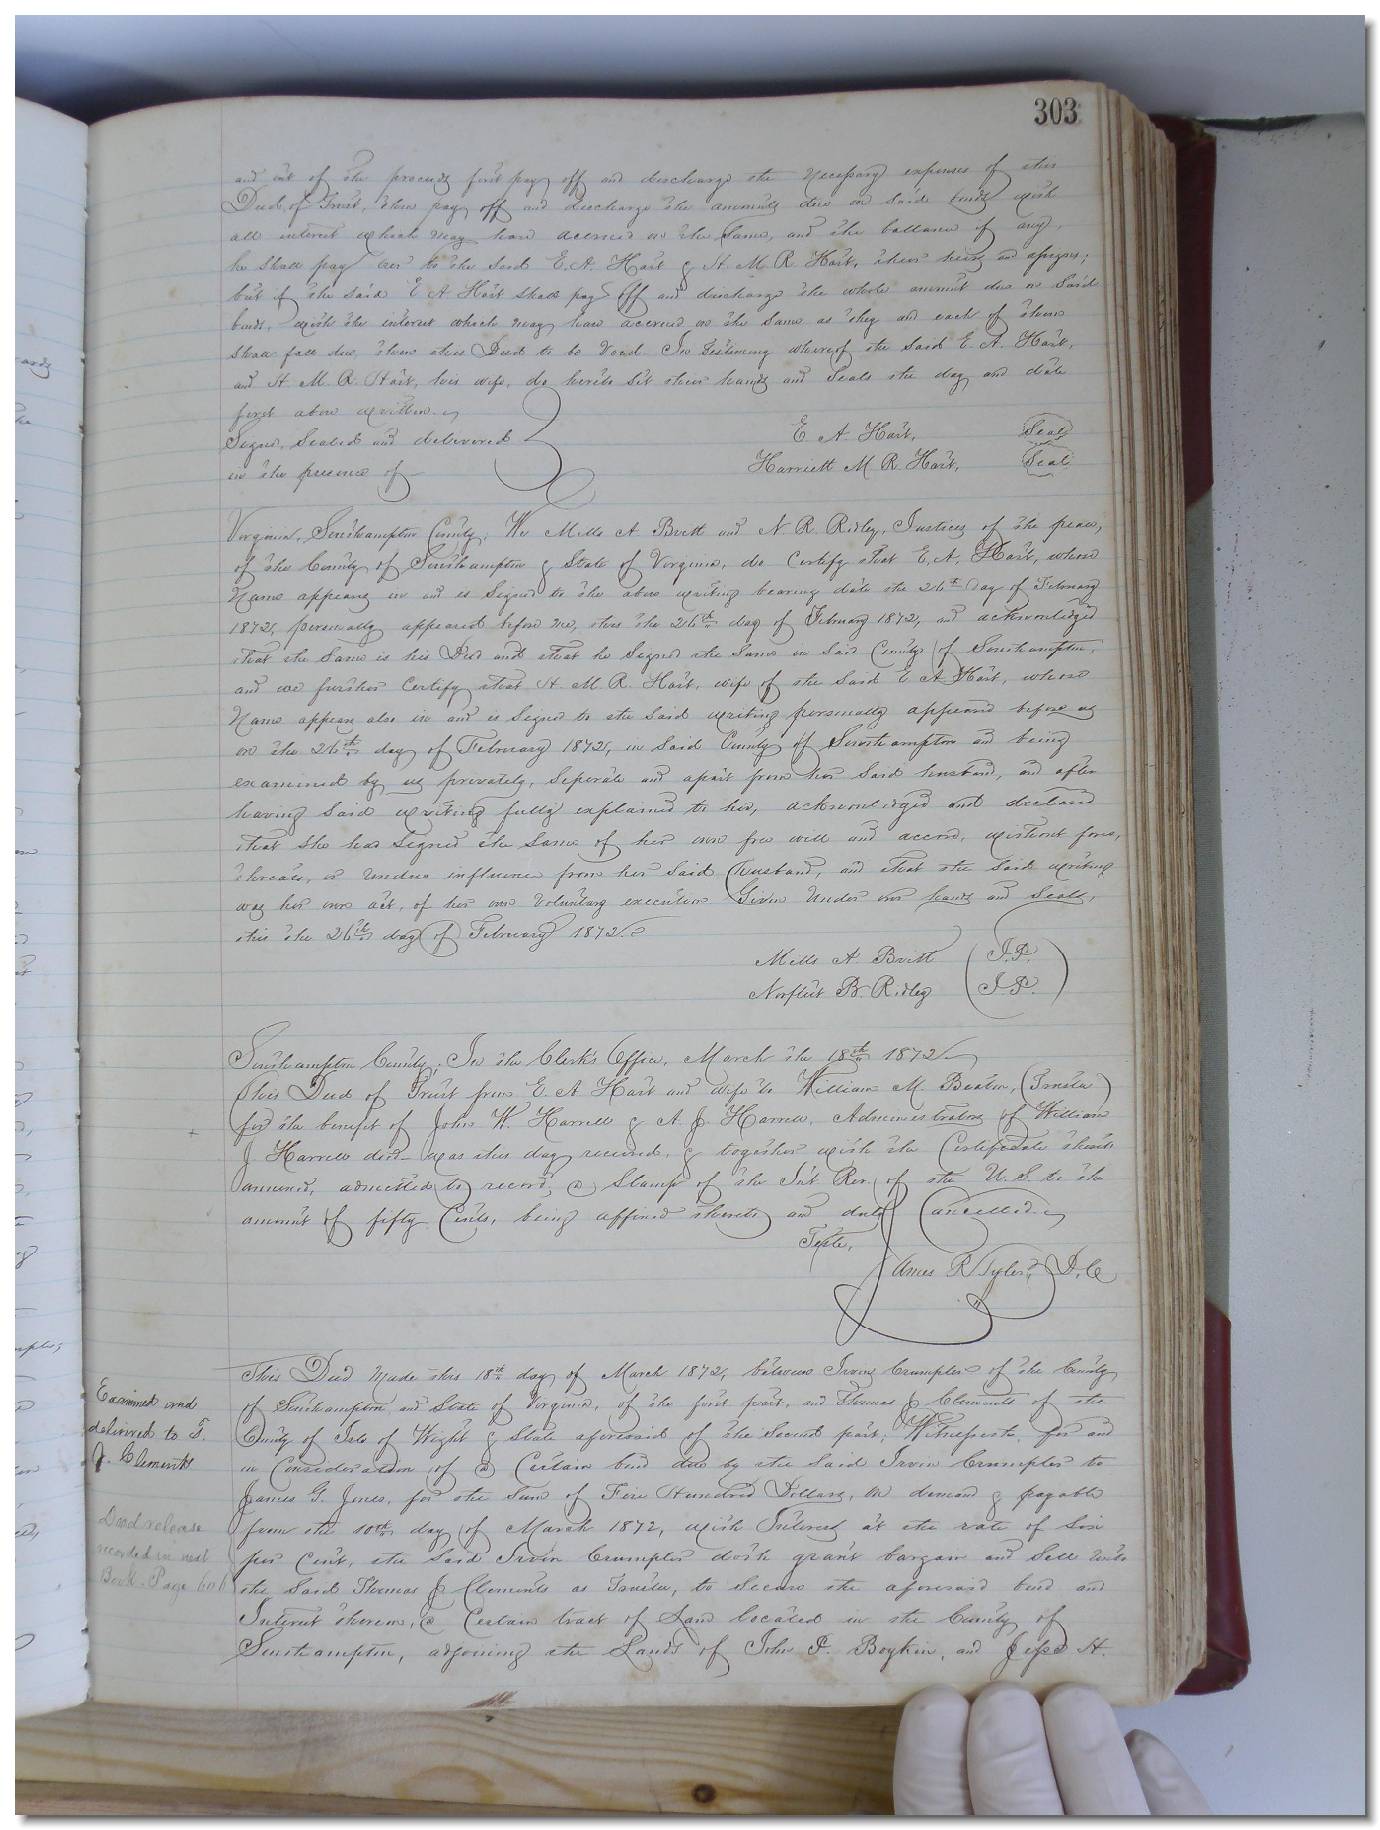 303
and out of the proceeds first pay off and discharge the necessary expenses of this
Deed of Trust, then pay off and discharge the amounts due on said bonds with
all interest which may have accrued on the same, and the ballance if any,
he shall pay over to the said E. A. Hart & H. M. R. Hart, their heirs and assigns;
but if the said E A Hart shall pay off and discharge the whole amount due on said
bonds, with the interest which may have accrued on the same as they and each of them
shall fall due, then this Deed to be Void In Testimony whereof the said E. A. Hart,
and H. M. R. Hart, his wife, do hereto set their hands and seals the day and date
first above written.
Signed, Sealed and delivered
in the presence of
E. A. Hart, Seal
Harriett M. R. Hart, Seal
Virginia, Southampton County, We Mills A Britt and N. R. Ridley, Justices of the peace,
of the County of Southampton & State of Virginia, do Certify that E. A. Hart, whose
Name appears in and is Signed to the above writing bearing date the 26th day of February
1872, personally appeared before me, this the 26th day of February 1872, and acknowledged
that the same is his Deed and that he Signed the Same in Said County of Southampton,
and we further Certify that H M. R. Hart, wife of the Said E A Hart, whose
Name appears also in and is Signed to the Said writing personally appeared before us
on the 26th day of February 1872, in Said County of Southampton and being
examined by us privately, Seperate and apart from her Said husband, and after
having Said writing fully explained to her, acknowledged and declared
that She had Signed the Same of her own free will and accord, without force,
threats, or undue influence from her Said husband, and that the Said writing
was her own act, of her own Voluntary execution Given Under our hands and Seals,
this the 26th day of February 1872.
Mills A. Britt J.P.
Norfleet B. Ridley J.P.
Southampton County; In the Clerk's Office, March the 18th 1872
This Deed of Trust from E. A Hart and wife to William M Beaton, (Trustee)
for the benefit of John W. Harrell & A. J. Harrell, Administrators of William
J Harrell decd was this day received, & together with the Certificate thereto
annexed, admitted to record; a Stamp of the Int Rev. of the U. S. to the
amount of fifty Cents, being affixed thereto and duly Cancelled.
Teste,
James R Tyler, D. C
This Deed Made this 18th day of March 1872, between Irvin Crumpler of the County
of Southampton and State of Virginia, of the first part, and Thomas J Clements of the
County of Isle of Wight & State aforesaid of the Second part, Witnesseth, for and
in Consideration of a Certain bond due by the Said Irvin Crumpler to
James G. Jones, for the Sum of Five Hundred Dollars, on demand & payable
from the 10th day of March 1872, with Interest at the rate of Six
per Cent, the Said Irvin Crumpler doth grant bargain and Sell unto
the Said Thomas J Clements as Trustee, to Secure the aforesaid bond and
Interest thereon, a Certain tract of Land located in the County of
Southampton, adjoining the Lands of John P. Boykin, and Jesse H.
Examined and
delivered to T.
J. Clements
Deed release
recorded in next
Book Page